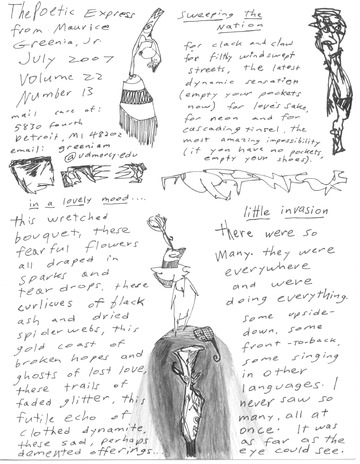 The Poetic Express
from Maurice
Greenia, Jr.
July 2007
Volume 22
Number 13
mail care of:
5830 Fourth
Detroit, MI 48202
email: greeniam
@udmercy.edu
Sweeping The
Nation
for clack and claw
for filthy windswept
streets, the latest
dynamic sensation
(empty your pockets
now) for love's sake,
for neon and for
cascading tinsel, the
most amazing impossibility
(if you have no pockets,
empty your shoes).
in a lovely mood....
this wretched
bouquet, these
fearful flowers
all draped in
sparks and
tear drops, these
curlicues of black
ash and dried
spider webs, this
gold coast of
broken hopes and
ghosts of lost love,
these trails of
faded glitter, this
futile echo of
clothed dynamite,
these sad, perhaps
demented offerings...
little invasion
there were so
many. they were
everywhere
and were
doing everything.
some upside-
down, some
front-to-back.
some singing
in other
languages. I
never saw so
many, all at
once. It was
as far as the
eye could see.